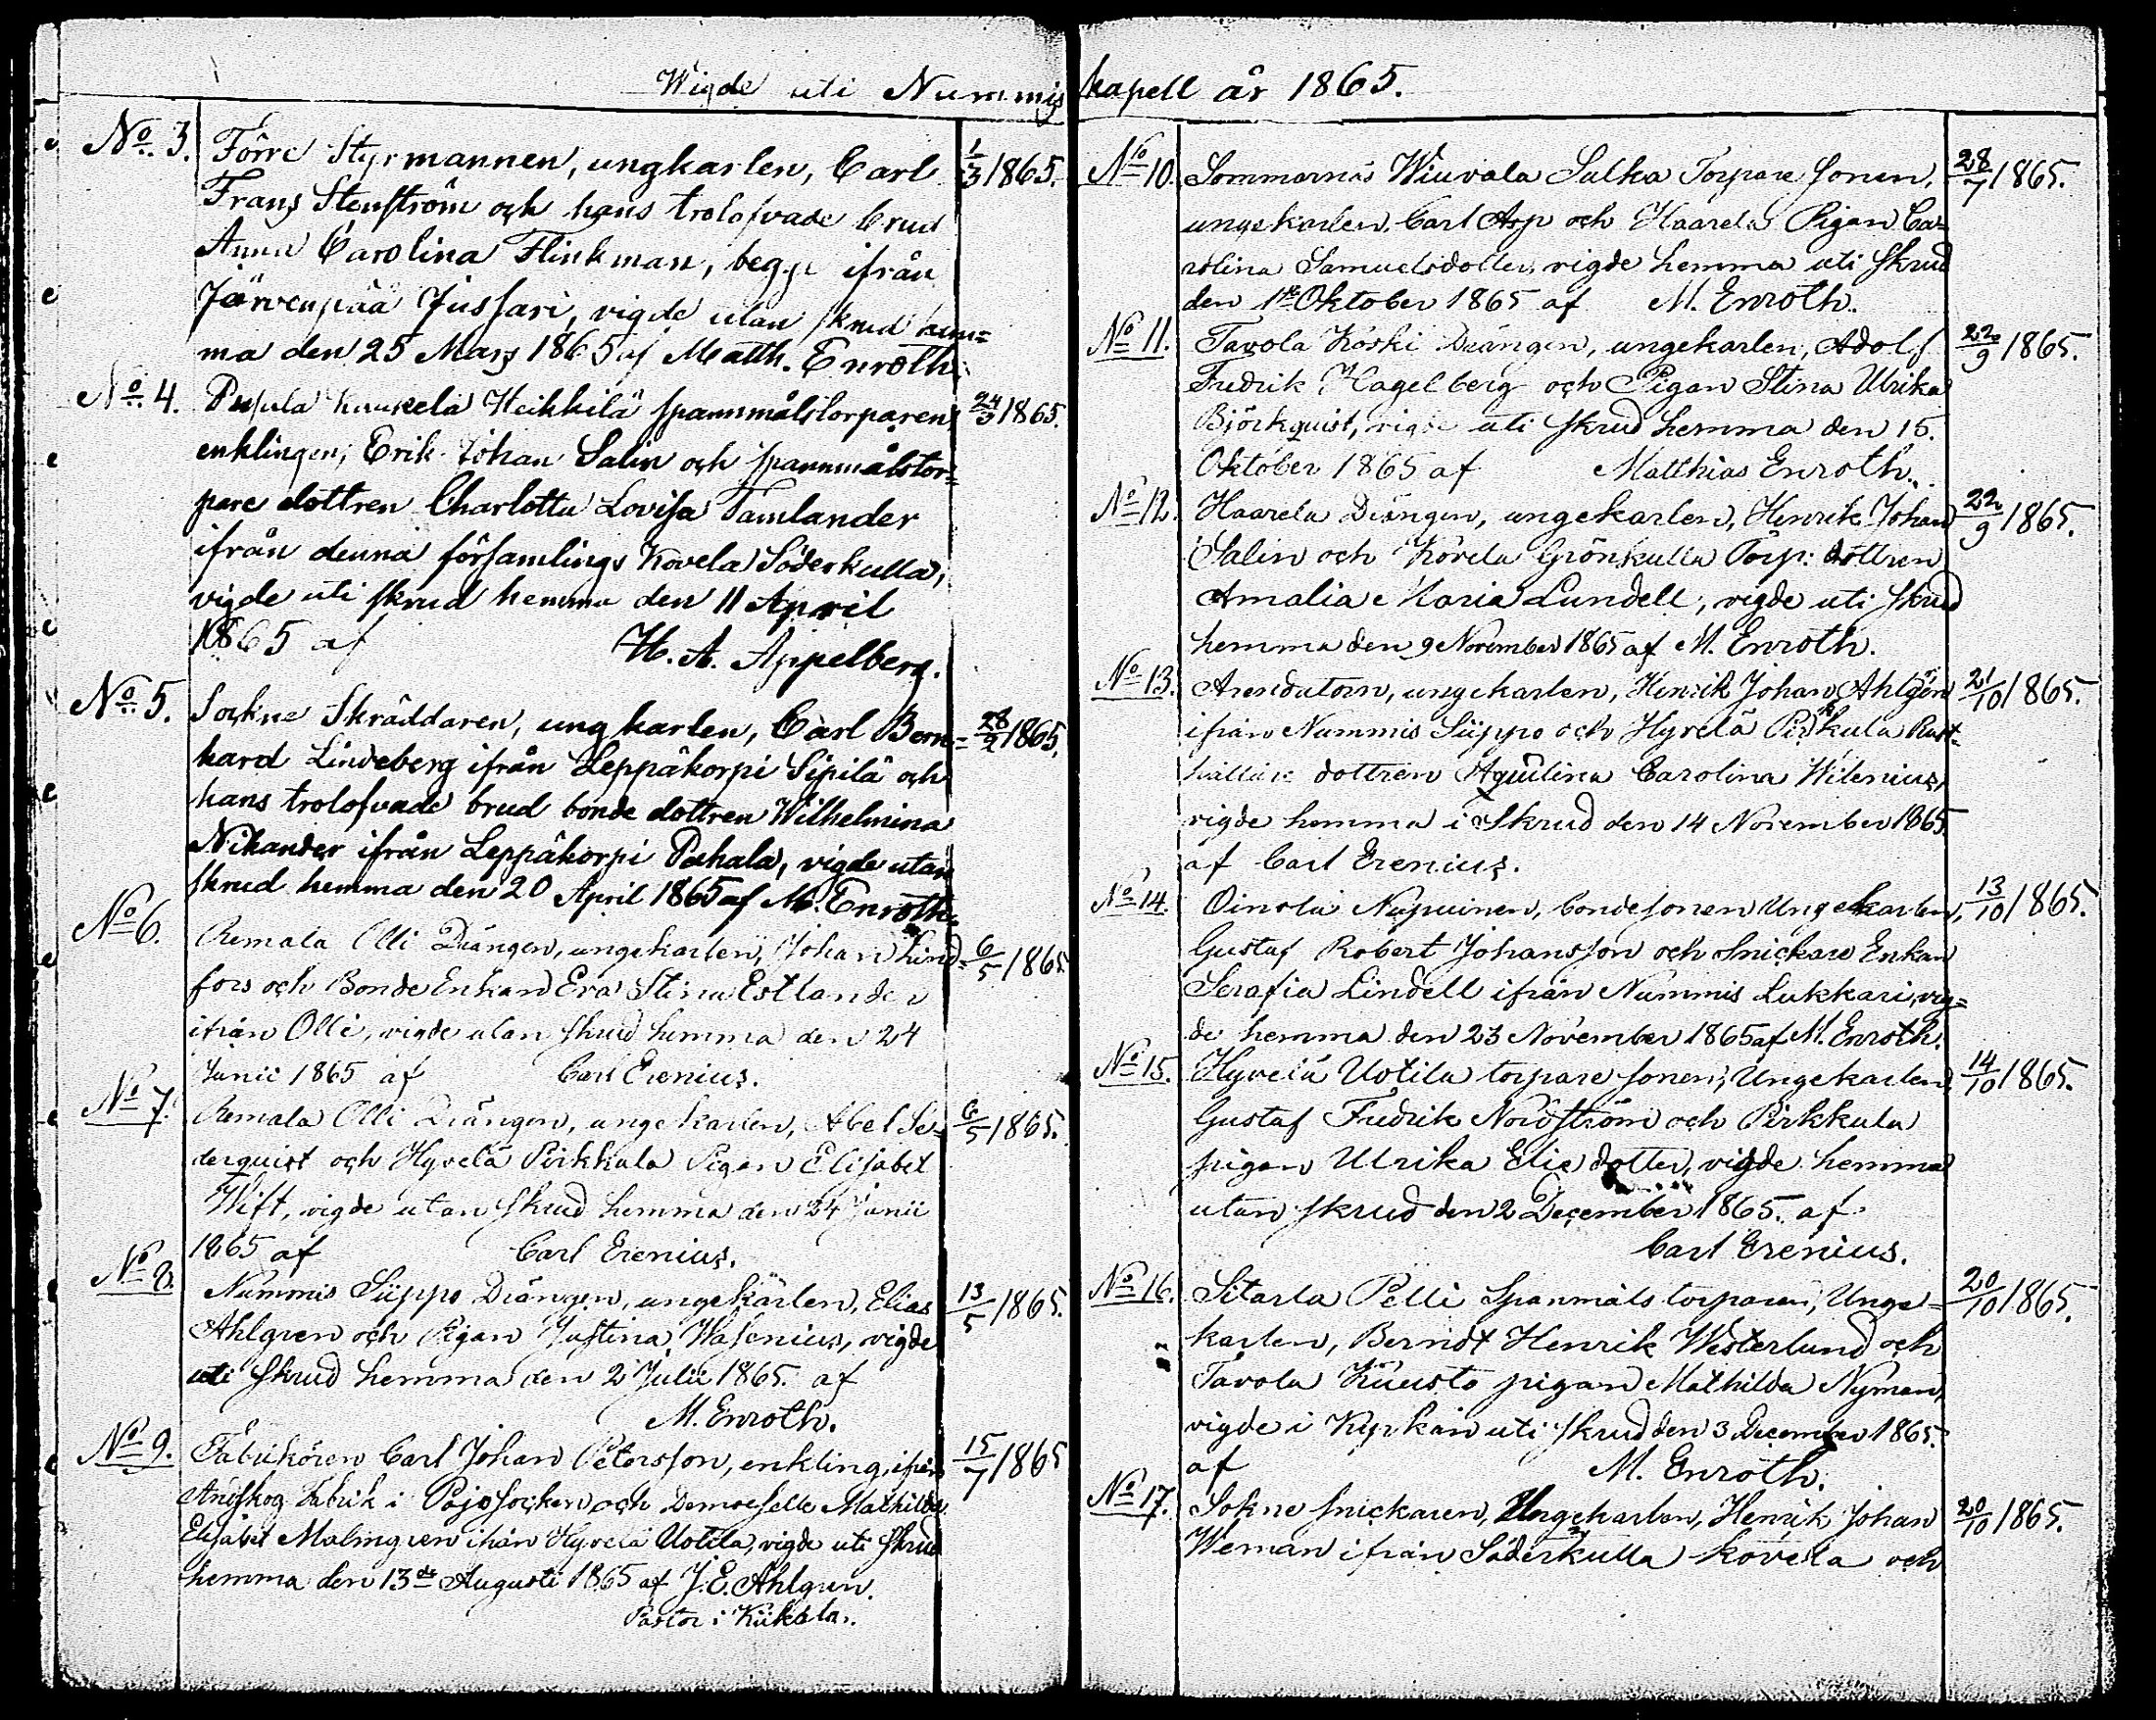 Wigde uti Nummis kapell år 1865.
No 3. Förre Styrmannen, ungkarlen, Carl 1/3 1865.
Frans Stenström och hans trolofvade brud
Anna Carolina Flinkman, begge ifrån
Järvenpää Jussari, vigde utan skrud hem=
ma den 25 Mars 1865 af Matth. Enroth.
No 4. Pusula Heikkilä spannmålstorparen 24/3 1865.
enklingen, Erik Johan Salin och spannmålstor=
pare dottren Charlotta Lovisa Tamlander
ifrån denna församlings Kovela Söderkulla,
vigde uti skrud hemma den 11 April
1865 af H. A. Appelberg.
No 5. Sockne Skräddaren, ungkarlen, Carl Bern= 28/2 1865.
hard Lindeberg ifrån Leppäkorpi Sipilä och
hans trolofvade brud bonde dottren Wilhelmina
Nikander ifrån Leppäkorpi Pahala, vigde utan
skrud hemma den 20 April 1865 af M. Enroth.
No 6. Remala Olli Drängen, ungekarlen, Johan Lind= 6/5 1865
fors och Bonde Enkan Eva Stina Estlander
ifrån Olli, vigde utan skrud hemma den 24
Junii 1865 af Carl Erenius.
No 7. Remala Olli Drängen, ungekarlen, Abel Se= 6/5 1865.
derquist och Hyvelä Pirkkula Pigan Elisabet
Wift, vigde utan skrud hemma den 24 Junii
1865 af Carl Erenius.
No 8. Nummis Siippo Drängen, ungekarlen, Elias 13/5 1865.
Ahlgren och Pigan Justina Wasenius, vigde
uti skrud hemma den 2 Julii 1865. af
M. Enroth.
No 9. Fabrikören Carl Johan Petersson, enkling, ifrån 15/7 1865
Antskog Fabrik i Pojo socken och Demoiselle Mathilda
Elisabet Malmgren ifrån Hyvelä Uotila, vigde uti skrud
hemma den 13de Augusti 1865 af J. E. Ahlgren.
Pastor i Kiikala.
No 10. Sommarnäs Wiuvala Sulka Torpare sonen, 28/7 1865.
ungekarlen, Carl Asp och Haarela Pigan Ca=
rolina Samuelsdotter, vigde hemma uti skrud
den 1ste Oktober 1865 af M. Enroth.
No 11. Tavola Koski Drängen, ungekarlen, Adolf 22/9 1865.
Fredrik Hagelberg och Pigan Stina Ulrika
Björkquist, vigde uti skrud hemma den 15.
Oktober 1865 af Matthias Enroth.
No 12. Haarela Drängen, ungekarlen, Henrik Johan 22/9 1865.
Salin och Kovela Grönkulla Torp: dottren
Amalia Maria Lundell, vigde uti skrud
hemma den 9 November 1865 af M. Enroth.
No 13. Arendatorn, ungekarlen, Henrik Johan Ahlgren 21/10 1865.
ifrån Nummis Siippo och Hyvelä Pirkkula Rust=
hållare dottren Aquilina Carolina Wilenius,
vigde hemma i Skrud den 14 November 1865
af Carl Erenius.
No 14. Oinola Nupuinen, bondesonen Ungekarlen, 13/10 1865.
Gustaf Robert Johansson och Snickare Enkan
Serafia Lindell ifrån Nummis Lukkari, vig=
de hemma den 23 November 1865 af M. Enroth.
No 15. Hyvelä Uotila torpare sonen, Ungekarlen, 14/10 1865.
Gustaf Fredrik Nordström och Pirkkula
pigan Ulrika Elie dotter, vigde hemma
utan skrud den 2 December 1865. af
Carl Erenius.
No 16. Sitarla Pelli Spanmåls torparen, Unge= 20/10 1865.
karlen, Berndt Henrik Westerlund och
Tavola Kuusto pigan Mathilda Nyman,
vigde i Kyrkan uti skrud den 3 December 1865.
af M. Enroth.
No 17. Sokne snickaren, Ungekarlen, Henrik Johan 20/10 1865.
Weman ifrån Söderkulla Kovela och